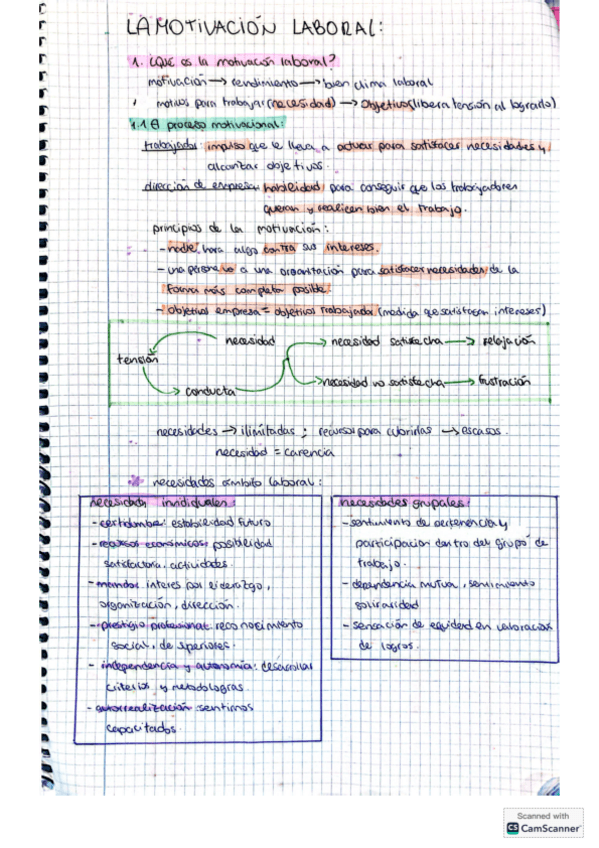 LA MOTIVACIÓN LABORAL:
1. ¿QUÉ es la motivación laboral?
motivación → rendimiento → bien clima laboral
motivos para trabajar (necesidad) → objetivos (libera tensión al lograrlo)
1.1 El proceso motivacional:
trabajador: impulso que le lleva a actuar para satisfacer necesidades y
alcanzar objetivos.
dirección de empresas: habilidad para conseguir que los trabajadores
quieran y realicen bien el trabajo.
principios de la motivación:
- nadie hará algo contra sus intereses.
- una persona va a una organización para satisfacer necesidades de la
forma más completa posible.
- objetivo empresa = objetivos trabajador (medida que satisfacen intereses)
necesidad → necesidad satisfecha → relajación
tensión
→ conducta → necesidad no satisfecha → frustración
necesidades → ilimitadas ; recursos para cubrirlas → escasos.
necesidad = carencia
necesidades ámbito laboral:
necesidades individuales:
- certidumbre: estabilidad futuro
- recursos económicos: posibilidad
satisfactoria, actividades.
- mandar: interés por liderazgo,
organización, dirección.
- prestigio profesional: reconocimiento
social, de superiores.
- independencia y autonomía: desarrollar
criterios y metodologías.
- autorrealización: sentirnos
capacitados.
necesidades grupales:
- sentimiento de pertenencia y
participación dentro del grupo de
trabajo.
- dependencia mutua, sentimiento
solidaridad
- sensación de equidad en valoración
de logros.
Scanned with
CS CamScanner